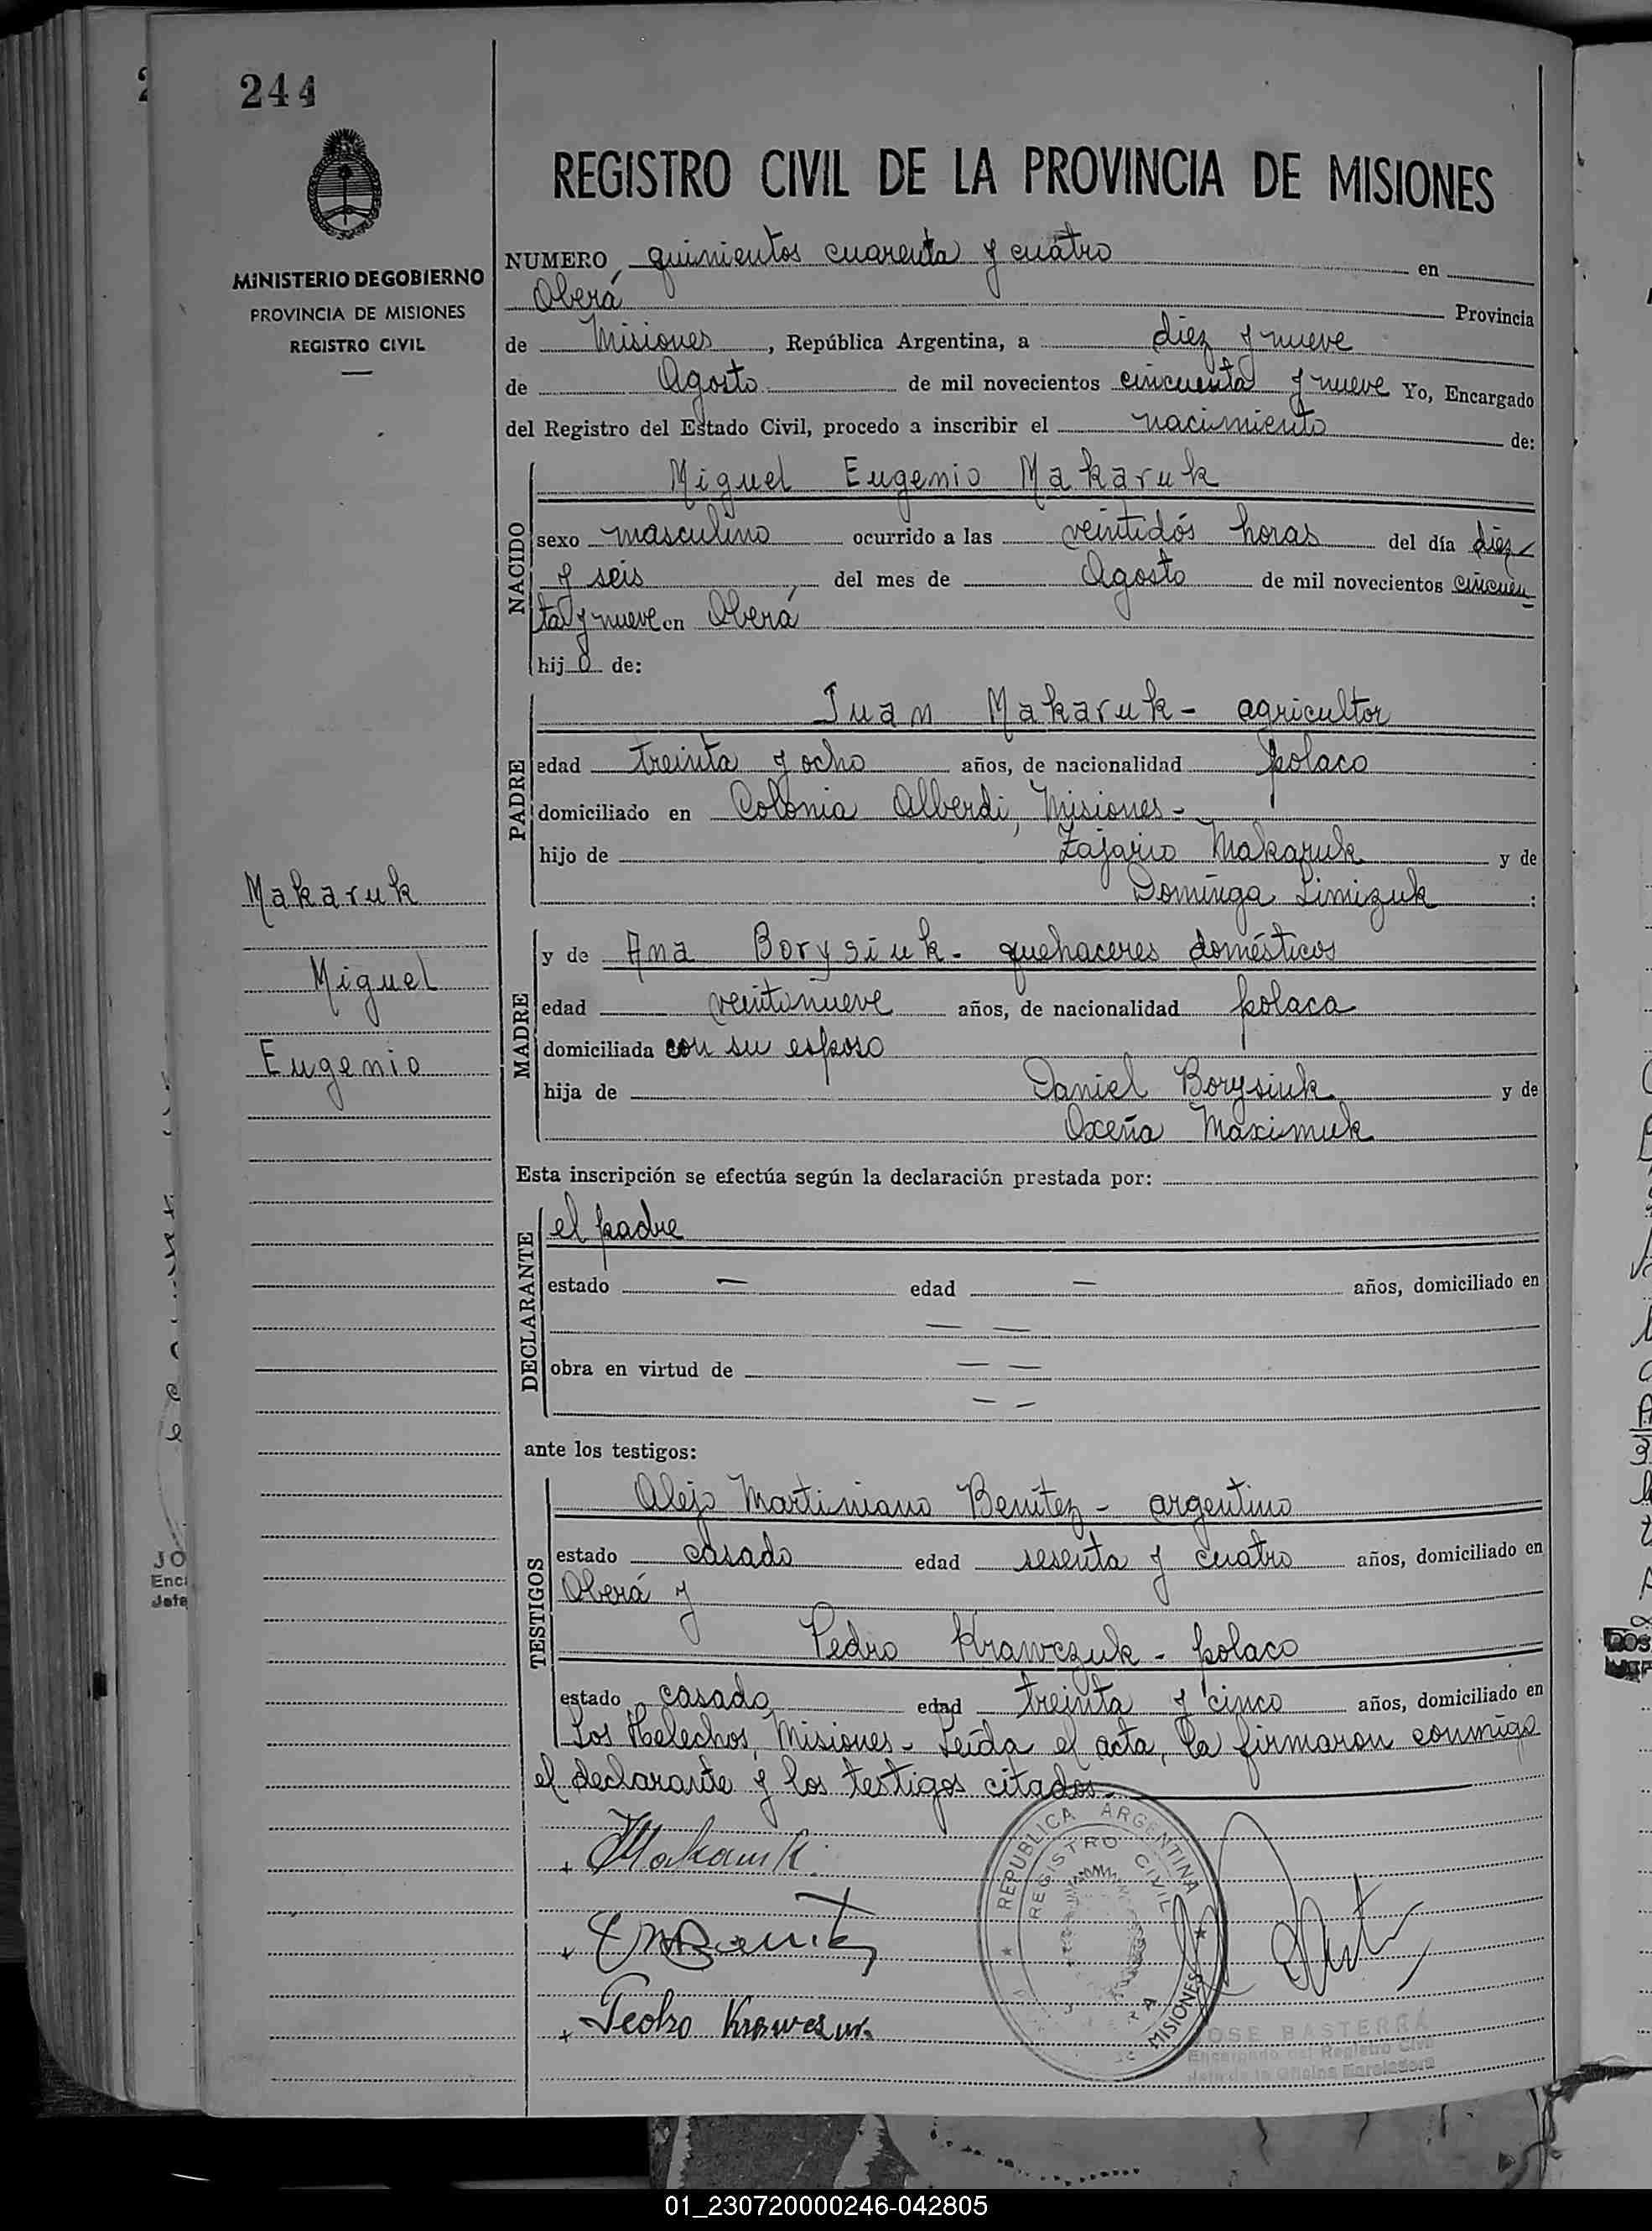 244
MINISTERIO DE GOBIERNO
PROVINCIA DE MISIONES
REGISTRO CIVIL
REGISTRO CIVIL DE LA PROVINCIA DE MISIONES
NUMERO, quinientos cuarenta y cuatro en
Oberá Provincia
de Misiones, República Argentina, a diez y nueve
de Agosto de mil novecientos cincuenta y nueve Yo, Encargado
del Registro del Estado Civil, procedo a inscribir el nacimiento de:
NACIDO
Miguel Eugenio Makaruk
sexo masculino ocurrido a las veintidós horas del día diez
y seis, del mes de Agosto de mil novecientos cincuen
ta y nueve en Oberá
hijo de:
PADRE
Juan Makaruk - agricultor
edad treinta y ocho años, de nacionalidad polaco
domiciliado en Colonia Alberdi, Misiones -
hijo de Zajario Makaruk y de
Dominga Simizuk:
Makaruk
Miguel
Eugenio
MADRE
y de Ana Borysiuk - quehaceres domésticos
edad veintinueve años, de nacionalidad polaca
domiciliada con su esposo
hija de Daniel Borysiuk y de
Oxeña Maximuk
Esta inscripción se efectúa según la declaración prestada por:
DECLARANTE
el padre
estado — edad — años, domiciliado en
— —
obra en virtud de — —
— —
ante los testigos:
TESTIGOS
Alejo Martiniano Benítez - argentino
estado casado edad sesenta y cuatro años, domiciliado en
Oberá y
Pedro Krawczuk - polaco
estado casado edad treinta y cinco años, domiciliado en
Los Helechos, Misiones - Leída el acta, la firmaron conmigo
el declarante y los testigos citados.-
REPUBLICA ARGENTINA
REGISTRO CIVIL
MISIONES
JOSE BASTERRA
Encargado del Registro Civil
Jefe de la Oficina Enroladora
JO
Enc
Jefe
01_230720000246-042805